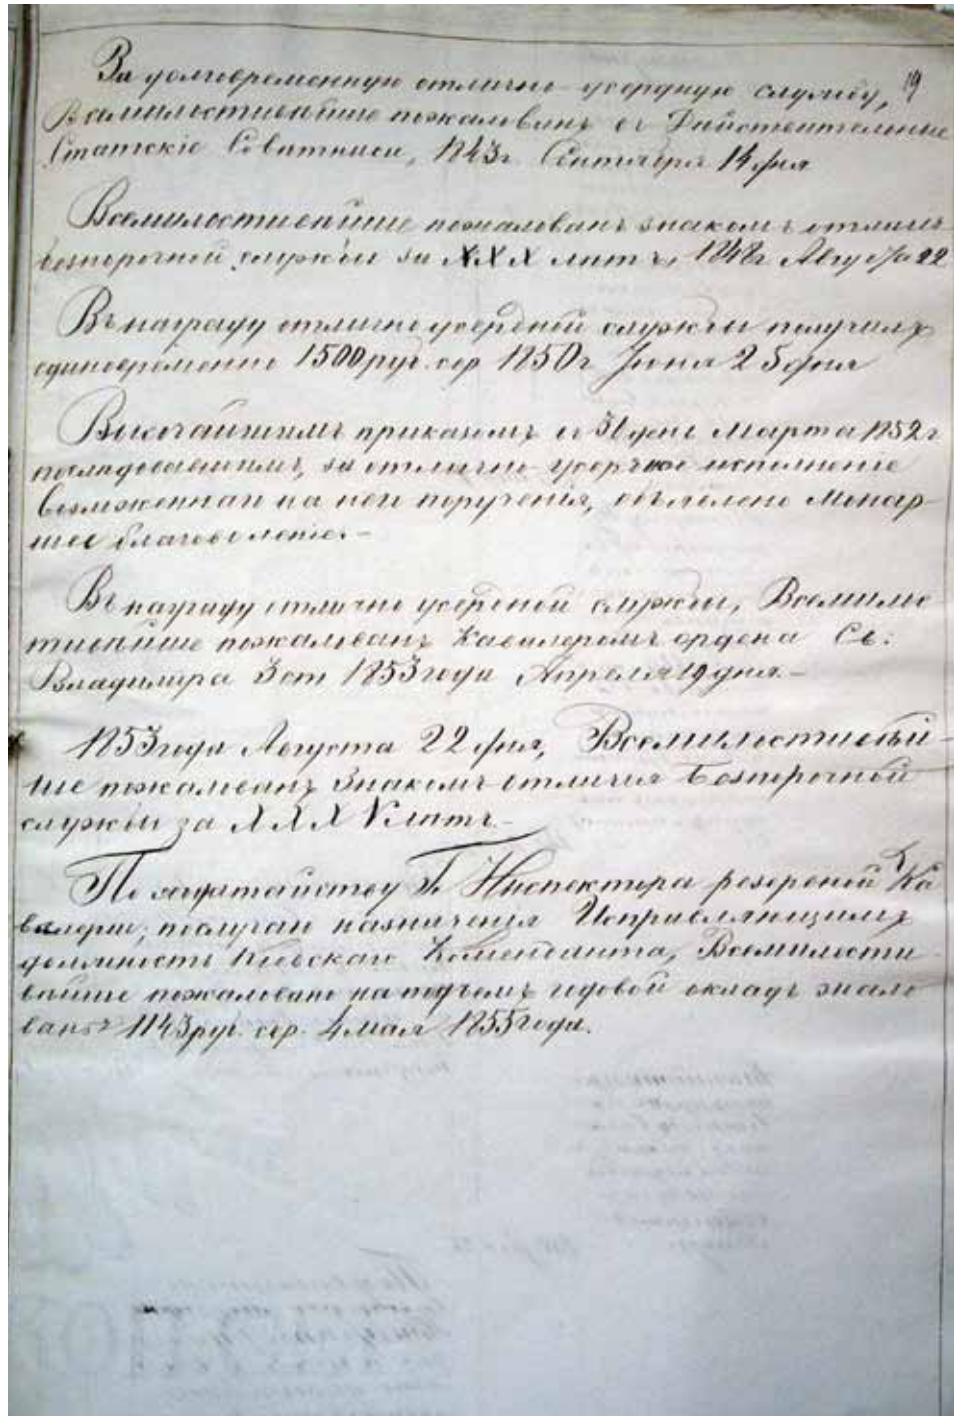 19
За долговременную отлично-усердную службу,
Всемилостивѣйше пожалованъ въ Дѣйствительные
Статскіе Совѣтники, 1843г. Сентября 14 дня
Всемилостивѣйше пожалованъ знакомъ отлич.
безпорочной службы за XXX лѣтъ, 1848г Августа 22
Въ награду отлично усердной службы получилъ
единовременно 1500 руб. сер 1850г Іюня 25 дня
Высочайшимъ приказомъ въ 31 день Марта 1852 г
послѣдовавшимъ, за отлично-усердное исполненіе
возложеннаго на него порученія, объявлено Монар-
шее благоволеніе.-
Въ награду отлично усердной службы, Всемилос
тивѣйше пожалованъ Кавалеромъ ордена Св:
Владиміра 3 ст 1853 года Апрѣля 19 дня.-
1853 года Августа 22 дня, Всемилостивѣй-
ше пожалованъ Знакомъ отличія Безпорочной
службы за XXXV лѣтъ.-
По ходатайству Г. Инспектора резервной Ка
валеріи, по случаю назначенія Исправляющимъ
должность Кіевскаго Коменданта, Всемилости-
вѣйше пожаловано на подъемъ годовой окладъ жало
ванья 1143 руб. сер. 4 мая 1855 года.